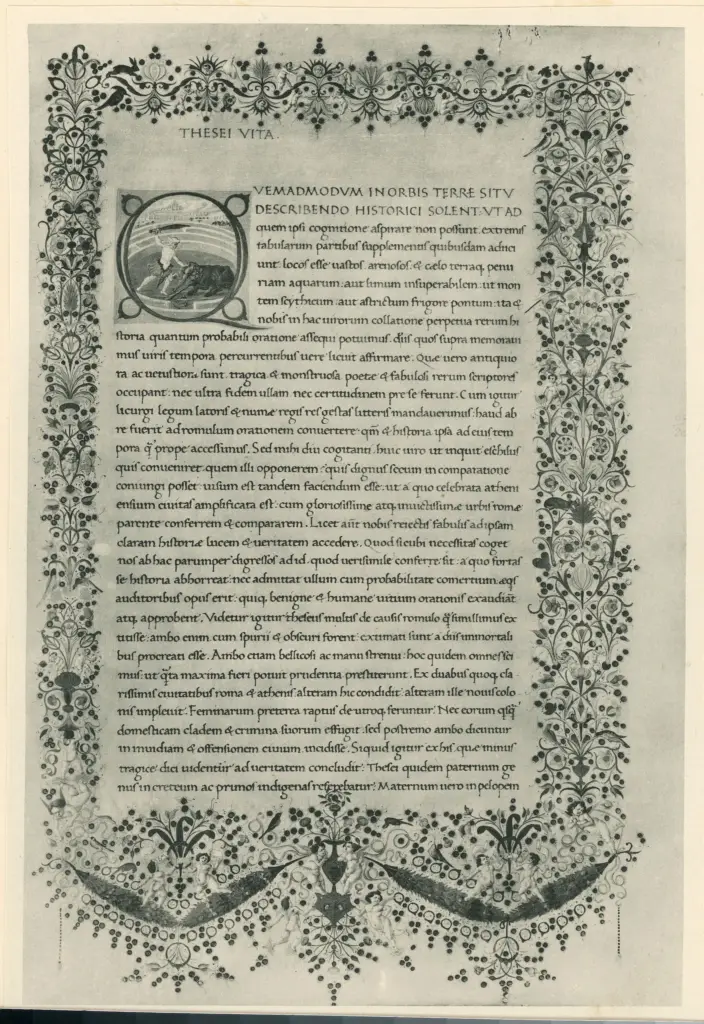 THESEI VITA.
QVEMADMODVM IN ORBIS TERRE SITV
DESCRIBENDO HISTORICI SOLENT. VT AD
quem ipsi cognitione aspirare non possunt. extremis
tabularum partibus supplementis quibusdam adnci
unt. locos esse vastos. arenosos. & cælo terraq. penu
riam aquarum: aut limum insuperabilem. ut mon
tem scythicum: aut astrictum frigore pontum: ita &
nobis in hac uirorum collatione perpetua rerum hi
storia quantum probabili oratione assequi potuimus. diis quos supra memoraui
mus uiris tempora percurrentibus uere licuit affirmare. Quæ uero antiquio
ra ac uetustiora sunt. tragica & monstruosa poetæ & fabulosi rerum scriptores
occupant. nec ultra fidem ullam. nec certitudinem pre se ferunt. Cum igitur
licurgi legum latoris & numæ regis res gestas litteris mandauerimus: haud ab
re fuerit ad romulum orationem conuertere: qm & historia ipsa ad eius tem
pora q prope accessimus. Sed mihi diu cogitanti. huic uiro ut inquit eschilus
quis conueniret: quem illi opponerem: quis dignus secum in comparatione
coniungi posset: uisum est tandem faciendum esse. ut a quo celebrata atheni
ensium ciuitas amplificata est: cum gloriosissime atq. inuictissimæ urbis romæ
parente conferrem & compararem. Licet aut nobis reiectis fabulis ad ipsam
claram historiæ lucem & ueritatem accedere. Quod sicubi necessitas coget
nos ab hac parumper digressos ad id. quod uerisimile conferre sit: a quo fortas
se historia abhorreat: nec admittat ullum cum probabilitate comertium. æqs
auditoribus opus erit: quiq. benigne & humane uitium orationis exaudiāt
atq. approbent. Videtur igitur theseus multis de causis romulo q simillimus ex
titisse: ambo enim. cum spurii & obscuri forent: extimati sunt a diis immortali
bus procreati esse. Ambo etiam bellicosi ac manu strenui: hoc quidem omnes sci
mus: ut qta maxima fieri potuit prudentia prestiterunt. Ex duabus quoq. cla
rissimis ciuitatibus roma & athenis: alteram hic condidit: alteram ille nouis colo
nis impleuit. Feminarum preterea raptus de utroq. feruntur. Nec eorum qsq
domesticam cladem & crimina suorum effugit: sed postremo ambo dicuntur
in inuidiam & offensionem ciuium incidisse. Siquid igitur ex his. quæ minus
tragice dici uidentur: ad ueritatem concludit: Thesei quidem paternum ge
nus in creteum ac primos indigenas referebatur: Maternum uero in pelopem